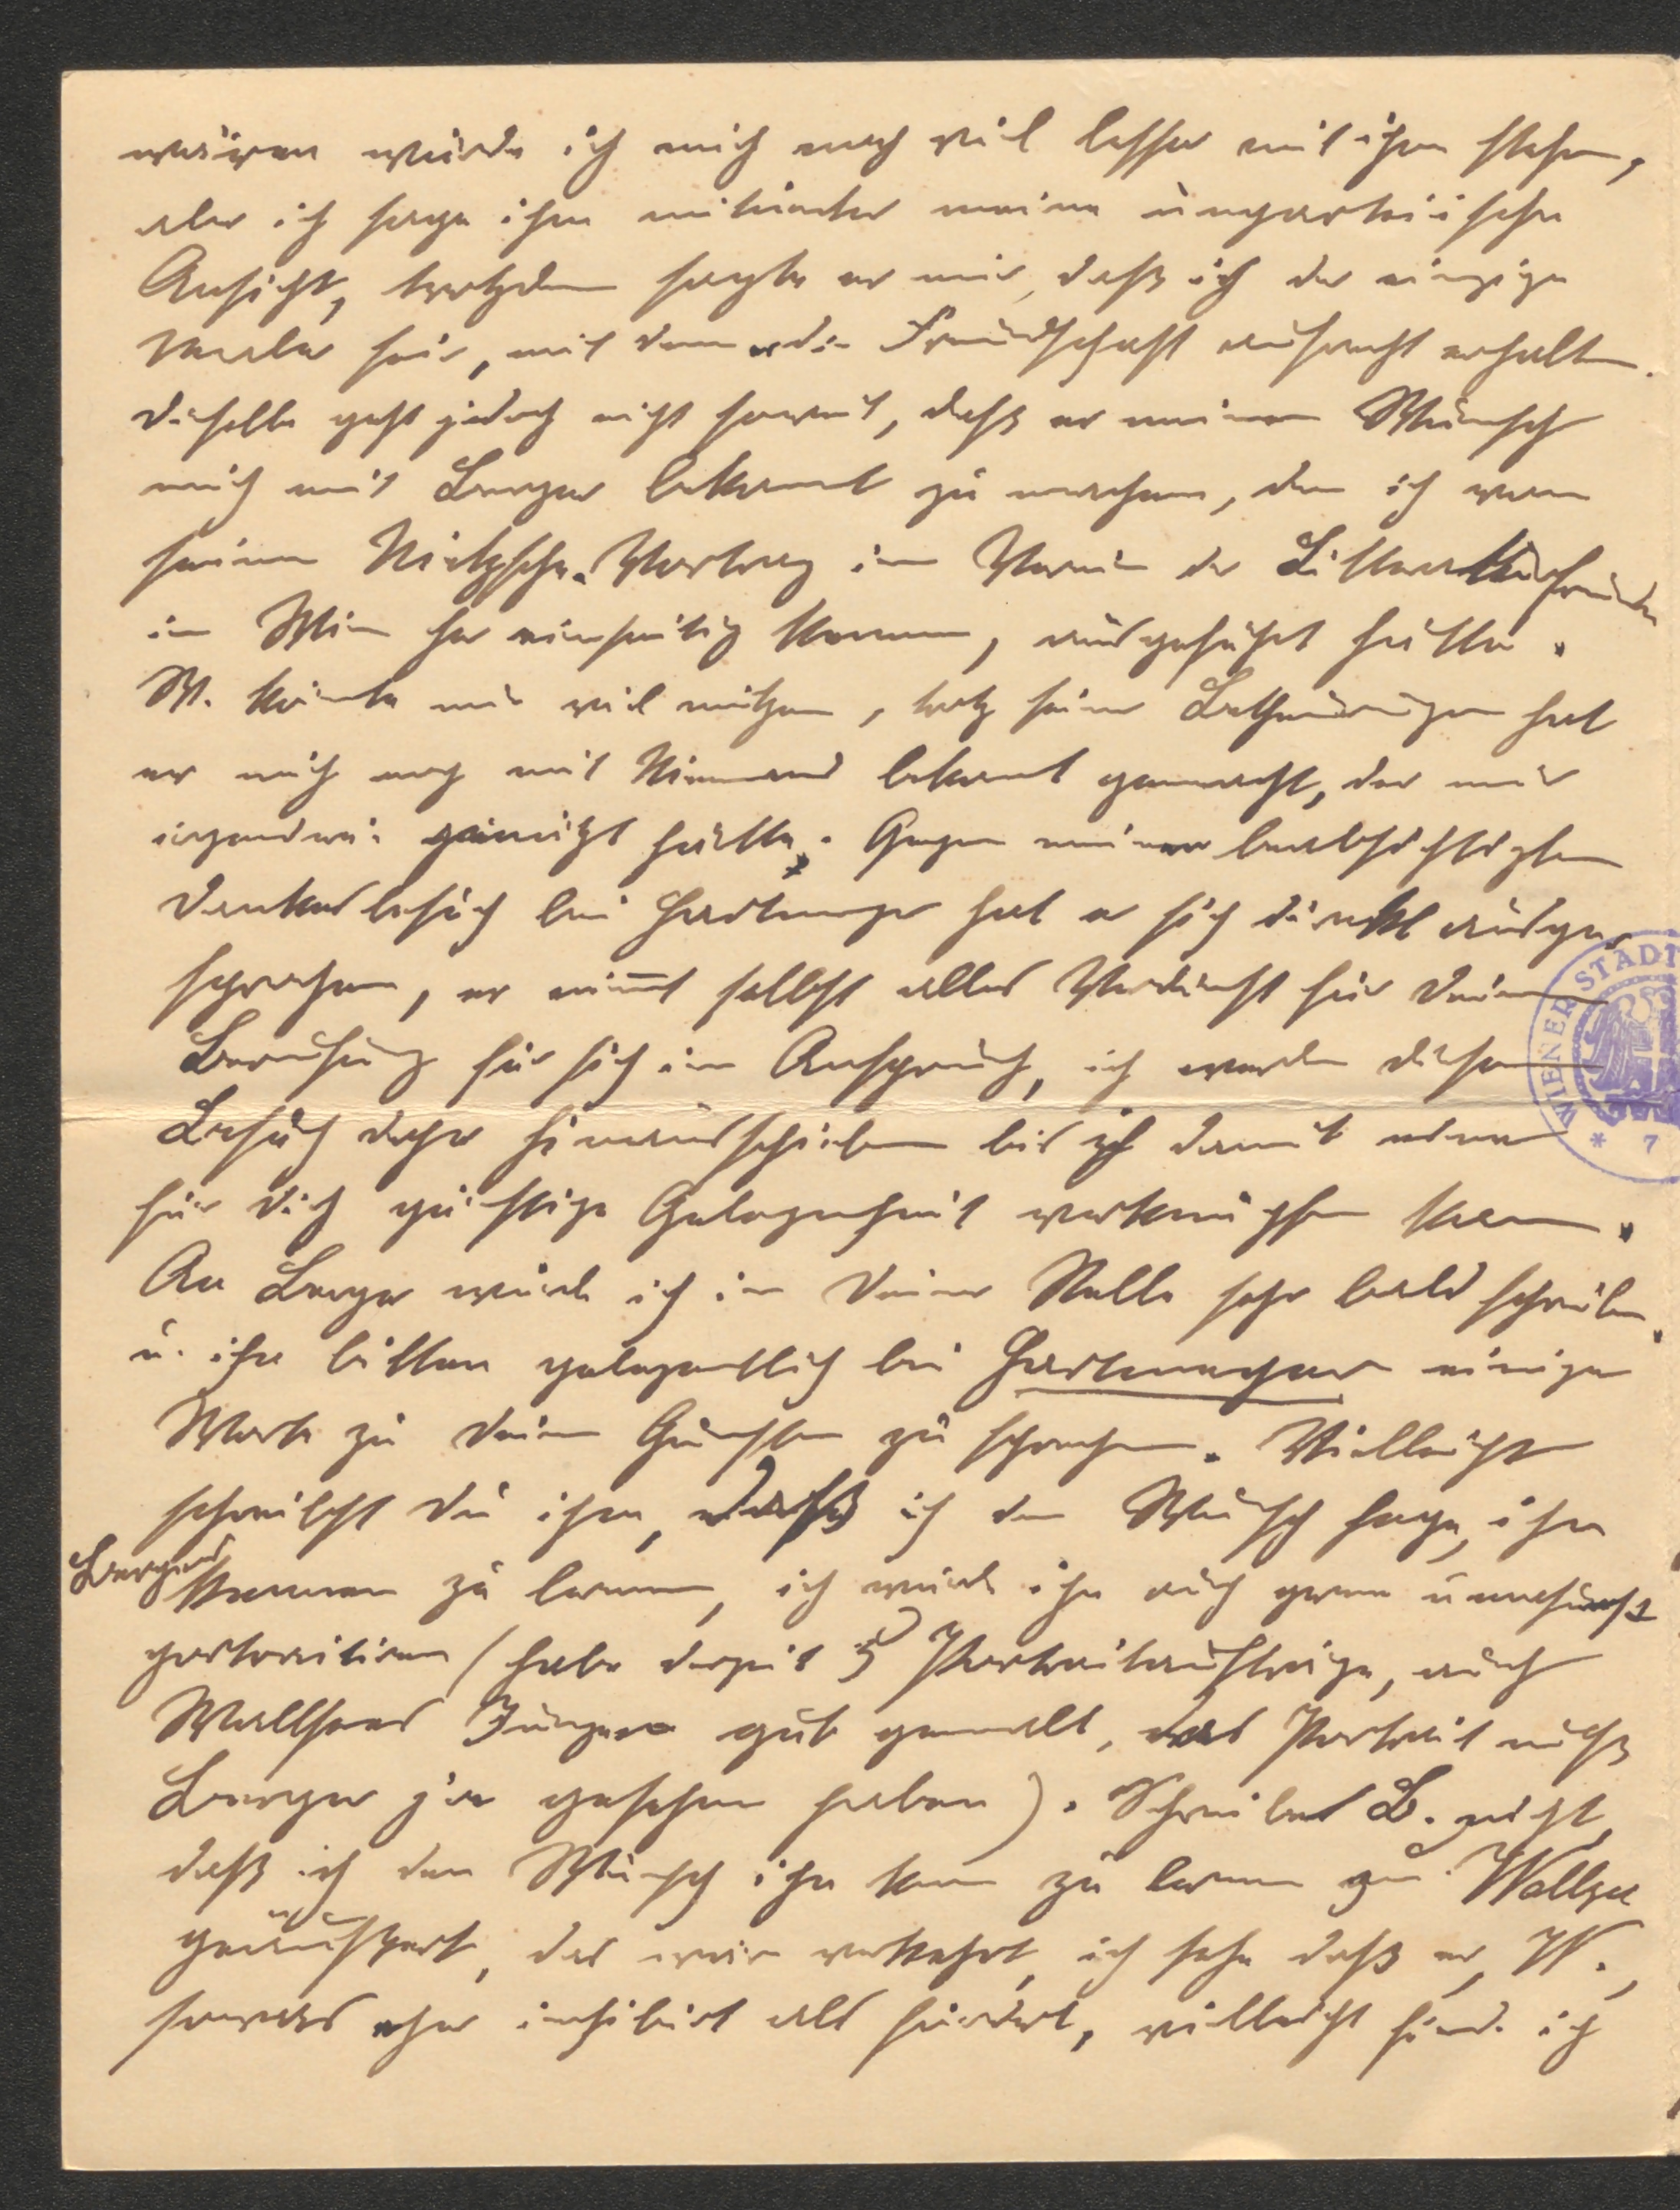 wären würde ich mich noch viel besser mit ihm stehen,
aber ich sage ihm mitunter meine unparteiische
Ansicht, trotzdem sagte er mir, daß ich der einzige
Maler sei, mit dem er die Freundschaft aufrecht erhalten.
Dieselbe geht jedoch nicht soweit, daß er meinen Wunsch
mich mit Berger bekannt zu machen, den ich von
seinem Nietzsche-Vortrag im Verein der Litteraturfreunde
in Wien her einseitig kenne, ausgeführt hätte.
W. könnte mir viel nützen, trotz seiner Betheuerungen hat
er mich noch mit Niemand bekannt gemacht, der mir
irgendwie genützt hätte. Gegen meinen beabsichtigten
Dankesbesuch bei Hartmeyer hat er sich direkt ausge-
sprochen, er nim̅t selbst alles Verdienst für Deine
Berufung für sich in Anspruch, ich werde diesen
Besuch daher hinausschieben bis ich damit eine
für Dich günstige Gelegenheit verknüpfen kann.
An Berger würde ich in Deiner Stelle sehr bald schreiben
u. ihn bitten gelegentlich bei Hartmeyer einige
Worte zu Deinen Gunsten zu sprechen. Vielleicht
schreibst Du ihm, daß ich den Wunsch hege, ihn
Berger
kennen zu lernen, ich würde ihn auch gerne umsonst
portraitiren (habe derzeit 5 Portraitaufträge, auch
Wallsees Jungen gut gemalt, das Portrait muß
Berger ja gesehen haben). Schreibe B. nicht,
daß ich den Wunsch ihn kennen zu lernen zu Wallsee
geäußert, das wäre verkehrt, ich sehe daß er, W.,
sowas eher inhibirt als fördert, vielleicht finde ich
WIENER STADT
* 7